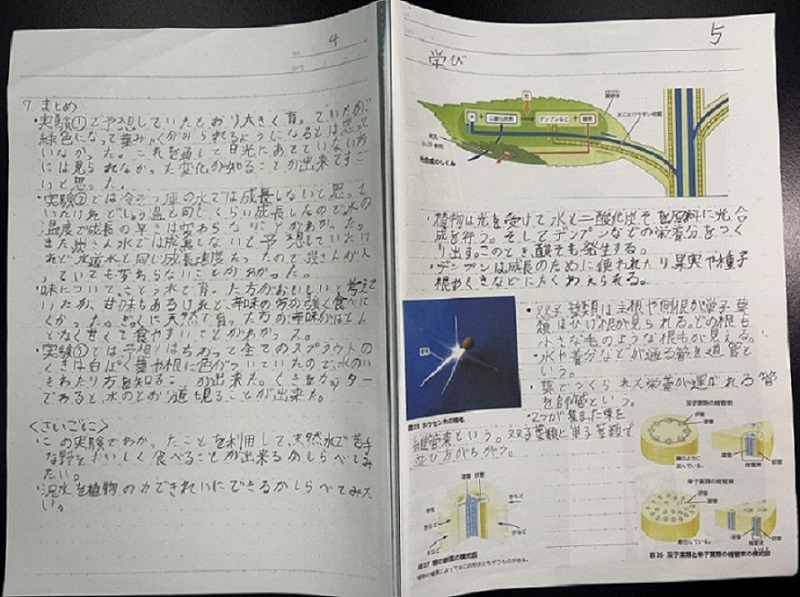 4
7. まとめ
・実験①で予想していたとおり大きく育っていたが
緑色になって葉みゃくがみられるようになるとは思って
いなかった。これを通して日光にあてていない方
には見られなかった変化が知ることが出来てすご
いと思った。
・実験②では冷ぞう庫の水では成長しないと思って
いたけれどしつ温と同じくらい成長したので水の
温度で成長の早さは変わらないことがわかった。
また炭さん水では成長しないと予想していたけ
れど水道水と同じ成長速度だったので炭さんが入
っていても変わらないことがわかった。
・味について 水で育った方がおいしいと考えて
いたが、甘味もあるけれど、辛味の方が強く食べに
くかった。ぎゃくに天然で育った方が辛味がほとん
どなく甘くて食やすいことがわかった。
・実験 では予想とはちがって全てのスプラウトの
くきは白っぽく葉や根に色がついていたので、水のい
きわたり方を知る が出来た。くきをカッター
であると、水のとおり道も見ることが出来た。
<さいごに>
・この実験でわかったことを利用して、天然水で苦手
な野 おいしく食べることが出来るかしらべてみ
たい。
・泥水を植物の力できれいにできるかしらべてみた
い。
5
学び
光
水 + 二酸化炭素
デンプンなど + 酸素
葉緑体
水にとけやすい物質
気孔
光合成のしくみ
・植物は光を受けて水と二酸化炭そを原料に光合
成を行う。そしてデンプンなどの栄養分をつく
り出す。このとき酸そも発生する。
・デンプンは成長のために使われたり果実や種子
根やくきなどにたくわえられる。
・双子葉類は主根や側根が単子葉
類はひげ根が見られる。どの根も
小さな毛のような根毛が見える。
・水や養分などが通る管を道管と
いう。
・葉でつくられた栄養が運ばれる管
を師管という。
・2つが集まった束を
維管束という。双子葉類と単子葉類で
並び方がちがう。
根毛
双子葉類の維管束
師管
道管
輪のように
並んでいる。
維管束
単子葉類の維管束
師管
道管
散らばっている。
維管束
道管 師管
根毛
水など
図27 根の断面の模式図
図25 双子葉類と単子葉類の維管束の模式図